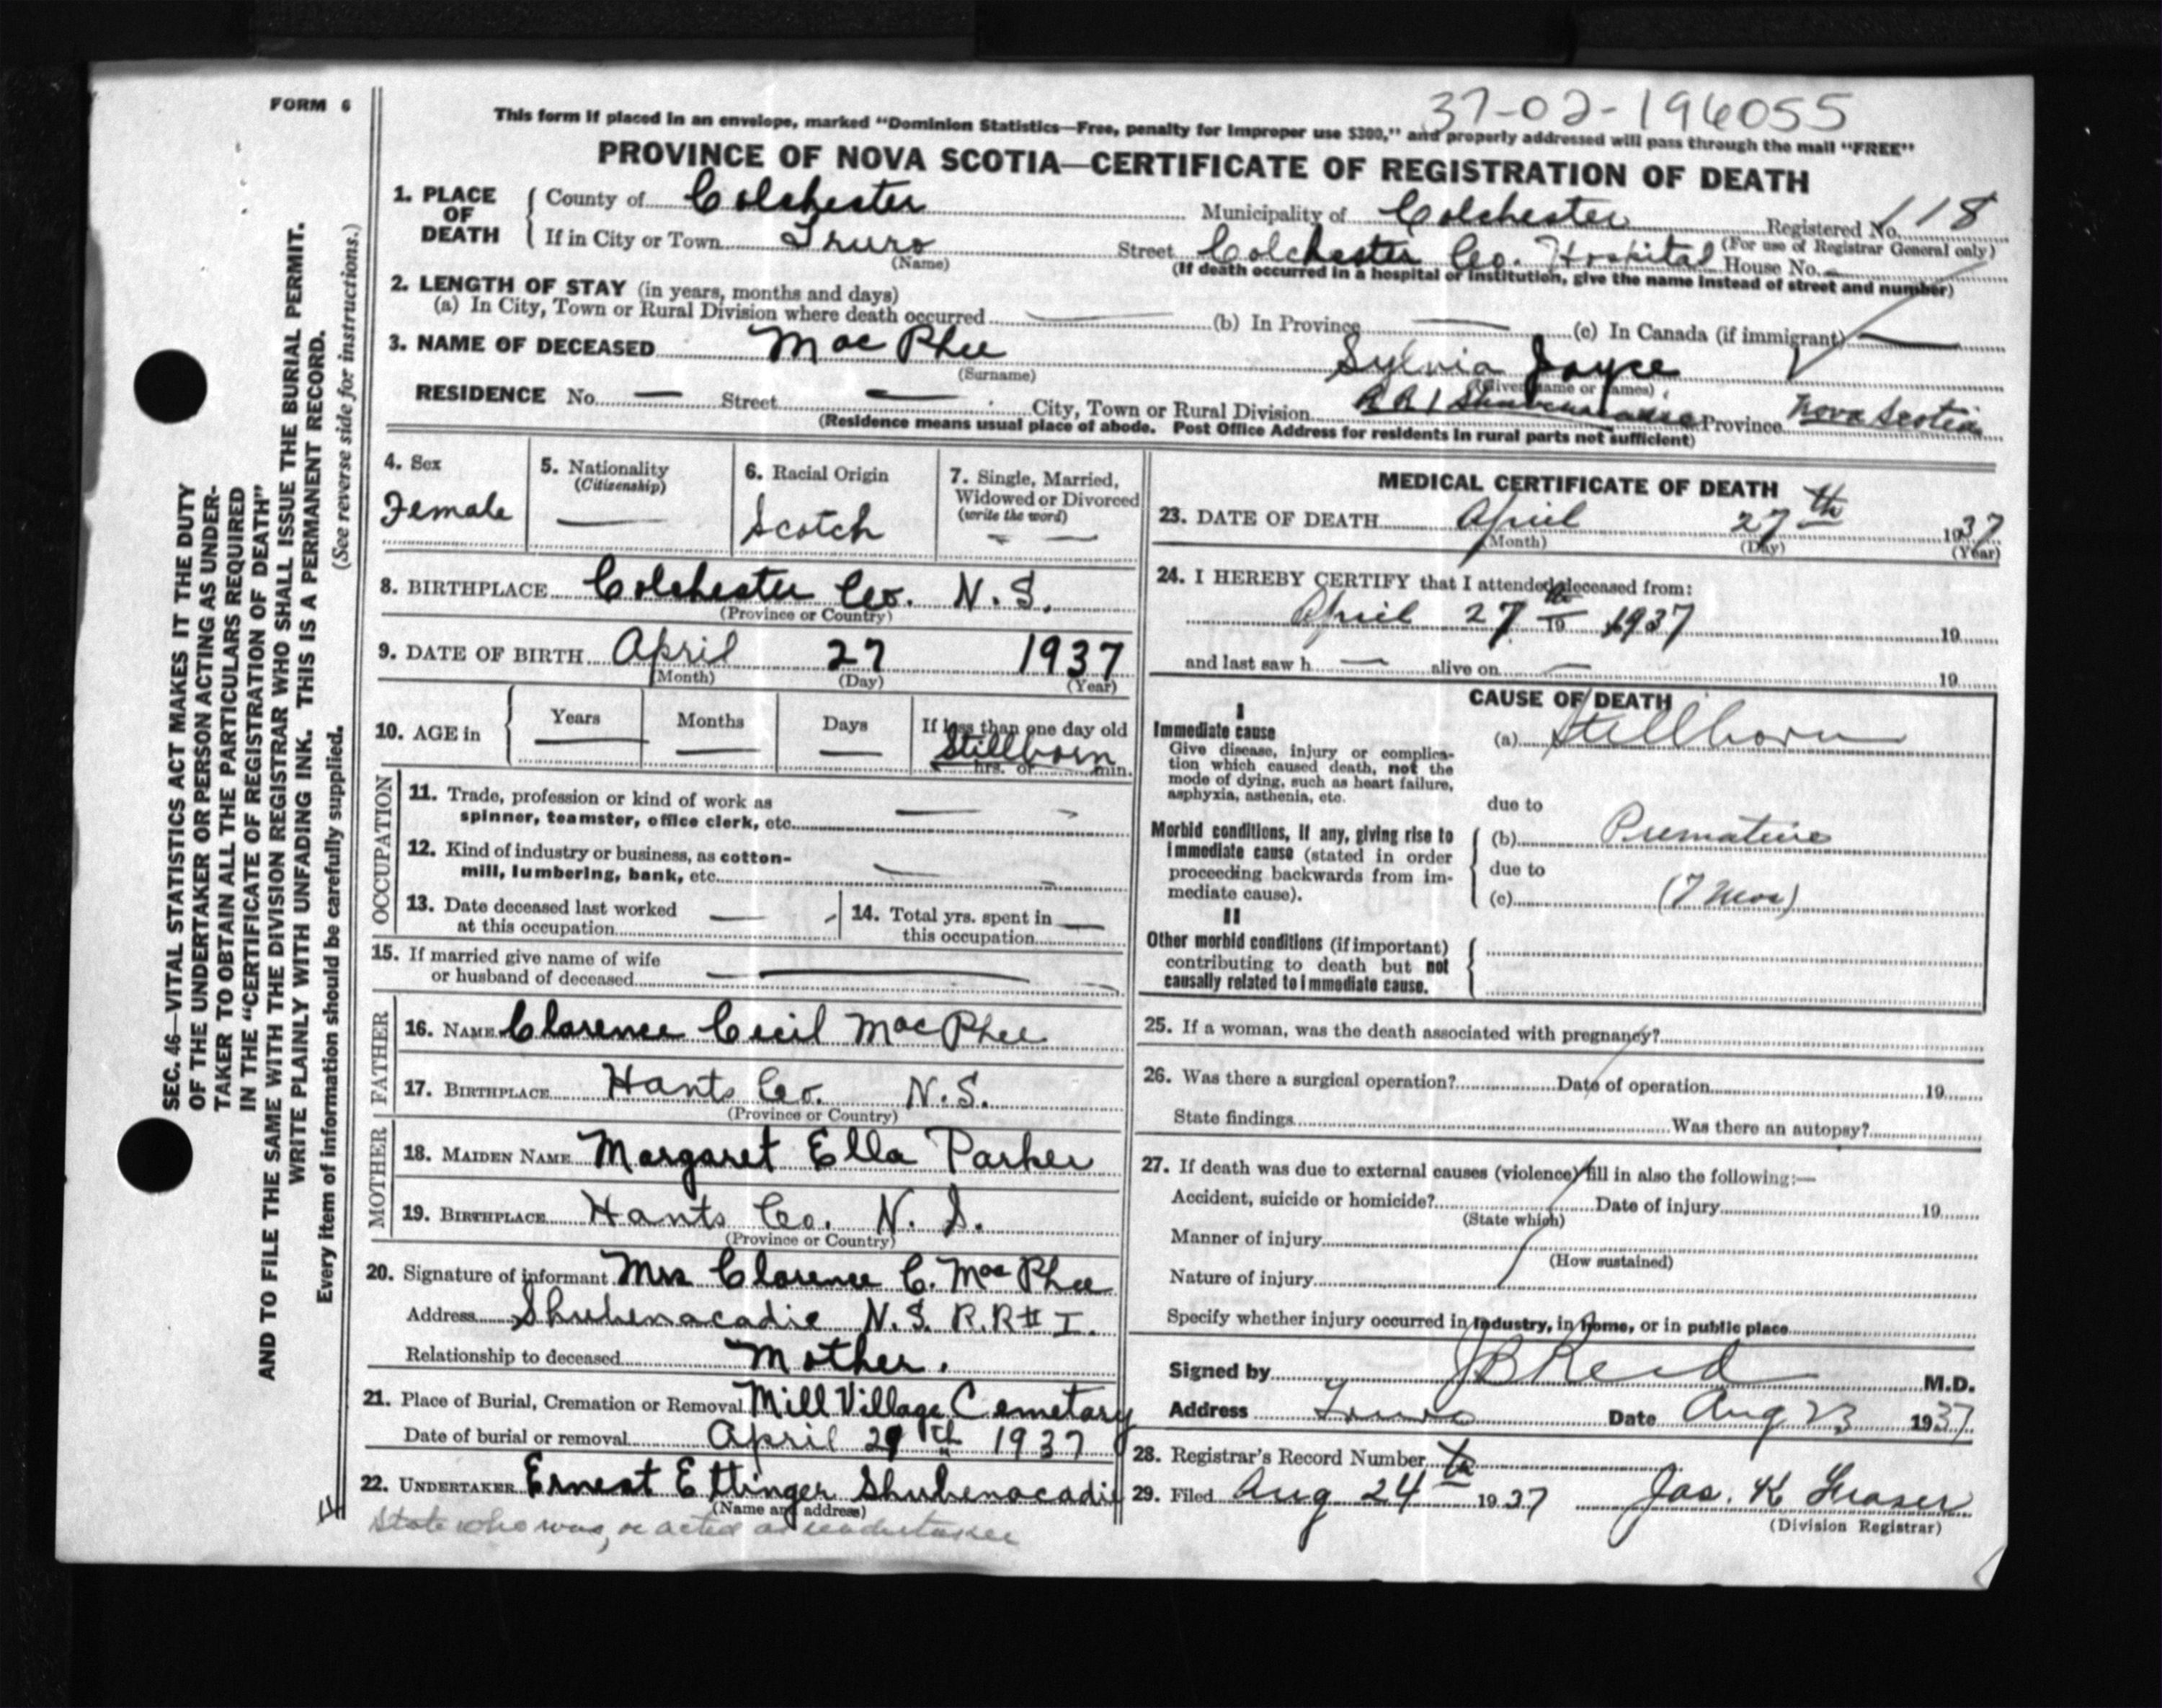 FORM 6
37-02-196055
This form if placed in an envelope, marked "Dominion Statistics—Free, penalty for improper use $300," and properly addressed will pass through the mail "FREE"
PROVINCE OF NOVA SCOTIA—CERTIFICATE OF REGISTRATION OF DEATH
1. PLACE OF DEATH
County of Colchester Municipality of Colchester Registered No. 118
(For use of Registrar General only)
If in City or Town Truro Street Colchester Co. Hospital House No. —
(Name) (If death occurred in a hospital or institution, give the name instead of street and number)
2. LENGTH OF STAY (in years, months and days)
(a) In City, Town or Rural Division where death occurred — (b) In Province — (c) In Canada (if immigrant) —
3. NAME OF DECEASED MacPhee Sylvia Joyce
(Surname) (Given name or names)
RESIDENCE No. — Street — City, Town or Rural Division R R 1 Shubenacadie Province Nova Scotia
(Residence means usual place of abode. Post Office Address for residents in rural parts not sufficient)
4. Sex
Female
5. Nationality
(Citizenship)
—
6. Racial Origin
Scotch
7. Single, Married,
Widowed or Divorced
(write the word)
— —
8. BIRTHPLACE Colchester Co. N.S.
(Province or Country)
9. DATE OF BIRTH April 27 1937
(Month) (Day) (Year)
10. AGE in
Years —
Months —
Days —
If less than one day old
Stillborn
hrs. or min.
OCCUPATION
11. Trade, profession or kind of work as
spinner, teamster, office clerk, etc. —
12. Kind of industry or business, as cotton-
mill, lumbering, bank, etc. —
13. Date deceased last worked
at this occupation —
14. Total yrs. spent in
this occupation —
15. If married give name of wife
or husband of deceased —
FATHER
16. NAME Clarence Cecil MacPhee
17. BIRTHPLACE Hants Co. N.S.
(Province or Country)
MOTHER
18. MAIDEN NAME Margaret Ella Parker
19. BIRTHPLACE Hants Co. N. S.
(Province or Country)
20. Signature of informant Mrs Clarence C. MacPhee
Address Shubenacadie N.S. R.R # I.
Relationship to deceased Mother.
21. Place of Burial, Cremation or Removal Mill Village Cemetary
Date of burial or removal April 29th 1937
22. UNDERTAKER Ernest Ettinger Shubenacadie
(Name and address)
State who was, or acted as undertaker
MEDICAL CERTIFICATE OF DEATH
23. DATE OF DEATH April 27th 1937
(Month) (Day) (Year)
24. I HEREBY CERTIFY that I attended deceased from:
April 27th 19 1937 19
and last saw h — alive on — 19
CAUSE OF DEATH
I
Immediate cause
Give disease, injury or complica-
tion which caused death, not the
mode of dying, such as heart failure,
asphyxia, asthenia, etc.
(a) Stillborn
due to
Morbid conditions, if any, giving rise to
immediate cause (stated in order
proceeding backwards from im-
mediate cause).
(b) Premature
due to
(c) (7 mos)
II
Other morbid conditions (if important)
contributing to death but not
causally related to immediate cause.
25. If a woman, was the death associated with pregnancy?
26. Was there a surgical operation? Date of operation 19
State findings Was there an autopsy?
27. If death was due to external causes (violence) fill in also the following:—
Accident, suicide or homicide? Date of injury 19
(State which)
Manner of injury
(How sustained)
Nature of injury
Specify whether injury occurred in industry, in home, or in public place
Signed by J B Reid M.D.
Address Truro Date Aug 23 1937
28. Registrar's Record Number
29. Filed Aug 24th 1937 Jas. K Fraser
(Division Registrar)
SEC. 46—VITAL STATISTICS ACT MAKES IT THE DUTY
OF THE UNDERTAKER OR PERSON ACTING AS UNDER-
TAKER TO OBTAIN ALL THE PARTICULARS REQUIRED
IN THE "CERTIFICATE OF REGISTRATION OF DEATH"
AND TO FILE THE SAME WITH THE DIVISION REGISTRAR WHO SHALL ISSUE THE BURIAL PERMIT.
WRITE PLAINLY WITH UNFADING INK. THIS IS A PERMANENT RECORD.
Every item of information should be carefully supplied. (See reverse side for instructions.)